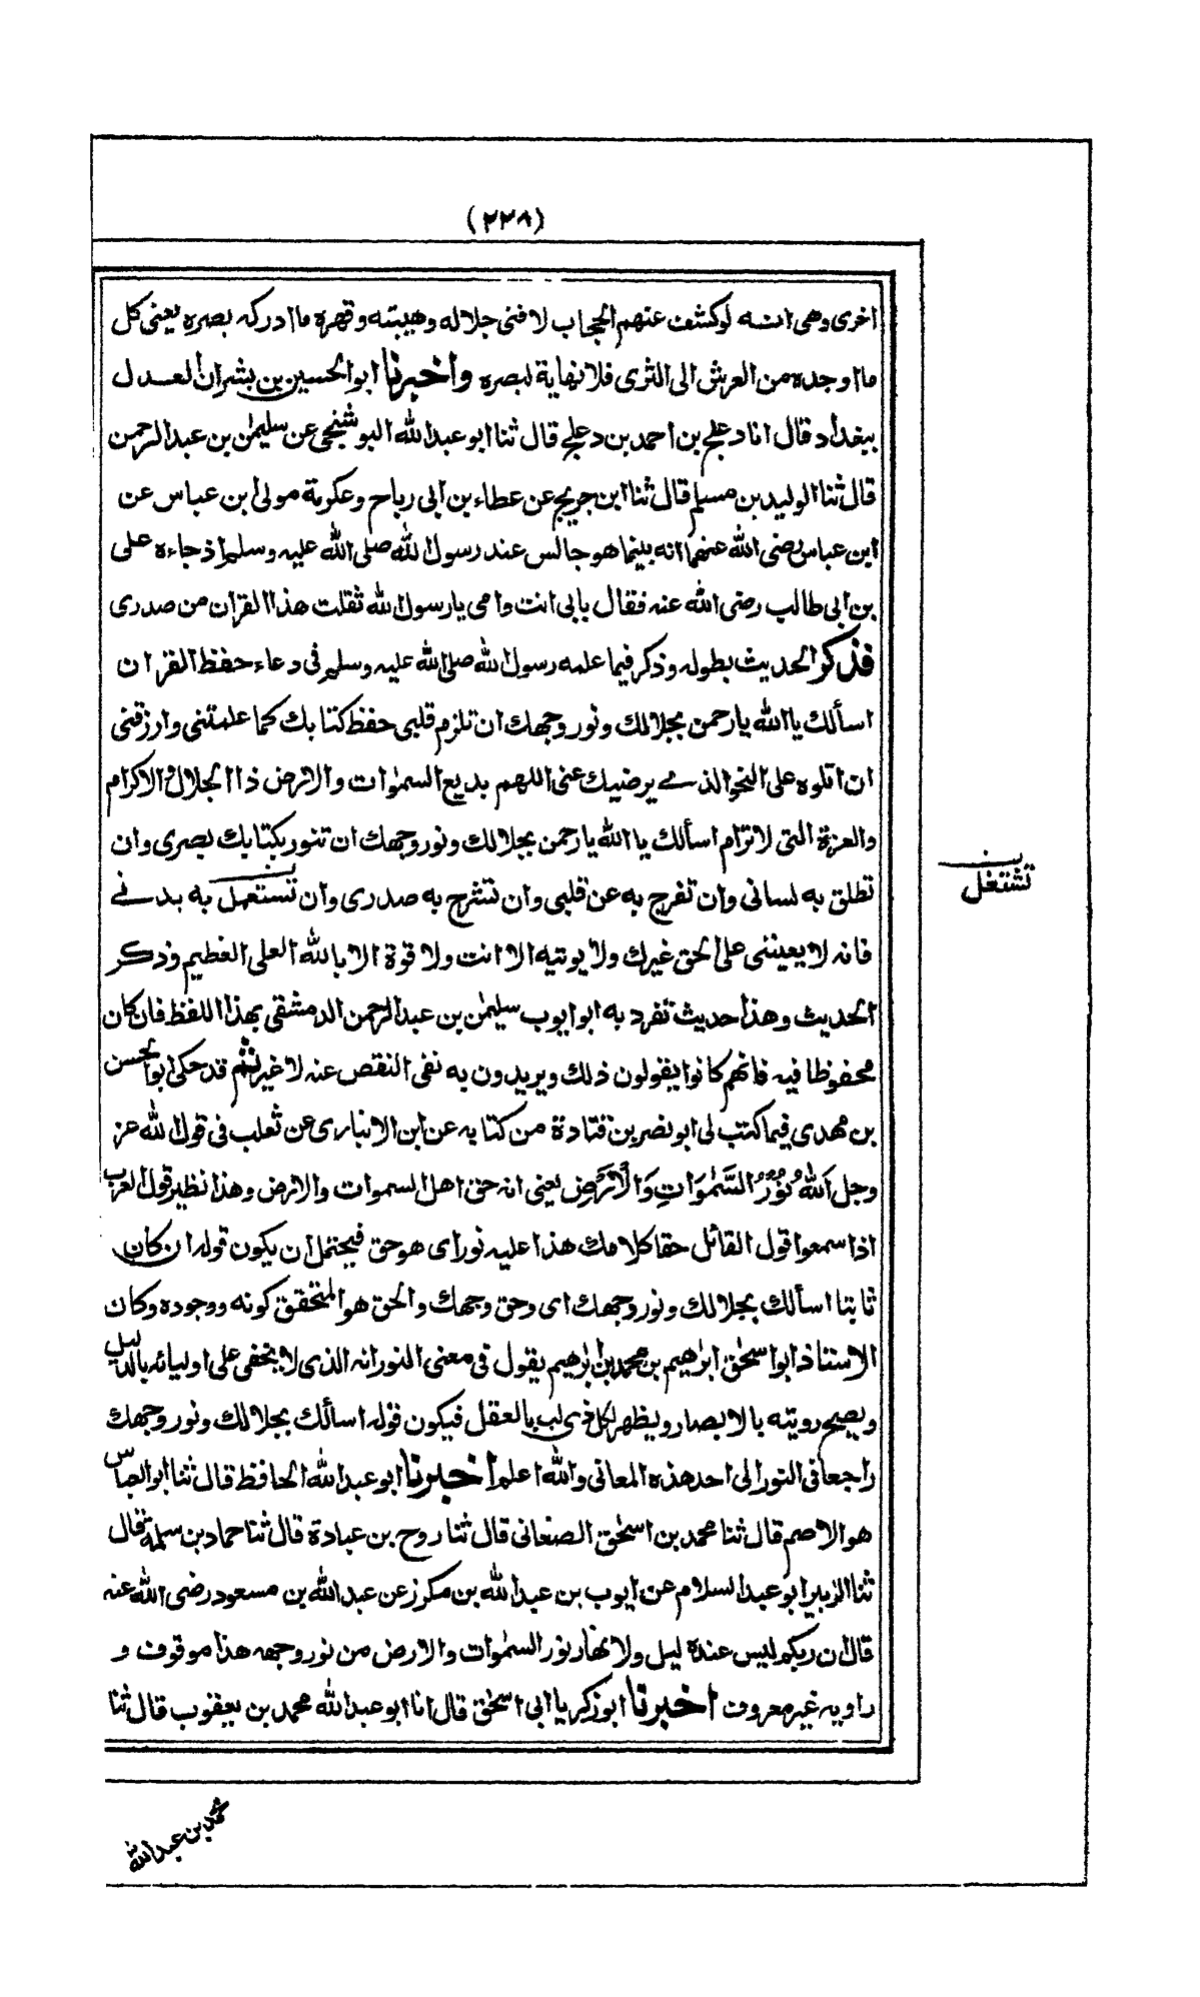 (٢٢٨)
اخرى وهى انه لوكشف عنهم الحجاب لافنى جلاله وهيبته وقهره ما ادركه بصره يعنى كل
ما اوجده من العرش الى الثرى فلا نهاية لبصره واخبرنا ابو الحسين بن بشران العدل
ببغداد قال انا دعلج بن احمد بن دعلج قال ثنا ابو عبد الله البوشنجى عن سليمٰن بن عبد الرحمن
قال ثنا الوليد بن مسلم قال ثنا ابن جريج عن عطاء بن ابى رباح وعكرمة مولى ابن عباس عن
ابن عباس رضى الله عنهما انه بينما هو جالس عند رسول الله صلى الله عليه وسلم اذ جاءه على
بن ابى طالب رضى الله عنه فقال بابى انت وامى يا رسول الله ثقلت هذا القران من صدرى
فذكر الحديث بطوله وذكر فيما علمه رسول الله صلى الله عليه وسلم فى دعاء حفظ القران
اسألك يا الله يا رحمن بجلالك ونور وجهك ان تلزم قلبى حفظ كتابك كما علمتنى وارزقنى
ان اتلوه على النحو الذے يرضيك عنى اللهم بديع السمٰوات والارض ذا الجلال والاكرام
والعزة التى لا ترام اسألك يا الله يا رحمن بجلالك ونور وجهك ان تنور بكتابك بصرى وان
تطلق به لسانى وان تفرج به عن قلبى وان تشرح به صدرى وان تستعمل به بدنے
تشتغل
فانه لا يعيننى على الحق غيرك ولا يوتيه الا انت ولا قوة الا بالله العلى العظيم وذكر
الحديث وهذا حديث تفرد به ابو ايوب سليمٰن بن عبد الرحمن الدمشقى بهذا اللفظ فان كان
محفوظا فيه فانهم كانوا يقولون ذلك ويريدون به نفى النقص عنه لا غير ثم قد حكى ابو الحسن
بن مهدى فيما كتب لى ابو نصر بن قتادة من كتابه عن ابن الانبارى عن ثعلب فى قول الله عز
وجل اَللّٰهُ نُوْرُ السَّمٰوَاتِ وَالْاَرْضِ يعنى انه حق اهل السموات والارض وهذا نظير قول العرب
اذا سمعوا قول القائل حقا كلامك هذا عليه نور اى هو حق فيحتمل ان يكون قوله ان كان
ثابتا اسألك بجلالك ونور وجهك اى وحق وجهك والحق هو المتحقق كونه ووجوده وكان
الاستاذ ابو اسحٰق ابرٰهيم بن محمد بن ابرٰهيم يقول فى معنى النور انه الذى لا يخفى على اوليائه بالدليل
ويصح رويته بالابصار ويظهر لكل ذى لب بالعقل فيكون قوله اسألك بجلالك ونور وجهك
راجعا فى النور الى احد هذه المعانى والله اعلم اخبرنا ابو عبد الله الحافظ قال ثنا ابو العباس
هو الاصم قال ثنا محمد بن اسحٰق الصنعانى قال ثنا روح بن عبادة قال ثنا حماد بن سلمة قال
ثنا الزبير ابو عبد السلام عن ايوب بن عبد الله بن مكرز عن عبد الله بن مسعود رضى الله عنه
قال ان ربكم ليس عنده ليل ولا نهار نور السمٰوات والارض من نور وجهه هذا موقوف و
راويه غير معروف اخبرنا ابو زكريا ابى اسحٰق قال انا ابو عبد الله محمد بن يعقوب قال ثنا
محمد بن عبد الله